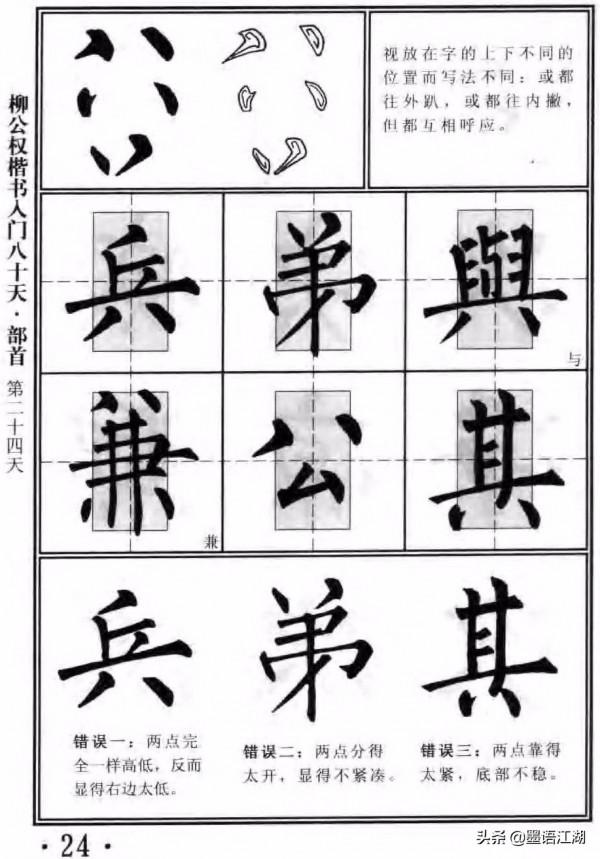 柳公权楷书入门八十天·部首 第二十四天
视放在字的上下不同的
位置而写法不同：或都
往外趴，或都往内撇，
但都互相呼应。
兵 弟 與
与
兼 公 其
兼
兵 弟 其
错误一：两点完
全一样高低，反而
显得右边太低。
错误二：两点分得
太开，显得不紧凑。
错误三：两点靠得
太紧，底部不稳。
·24·
头条 @墨语江湖